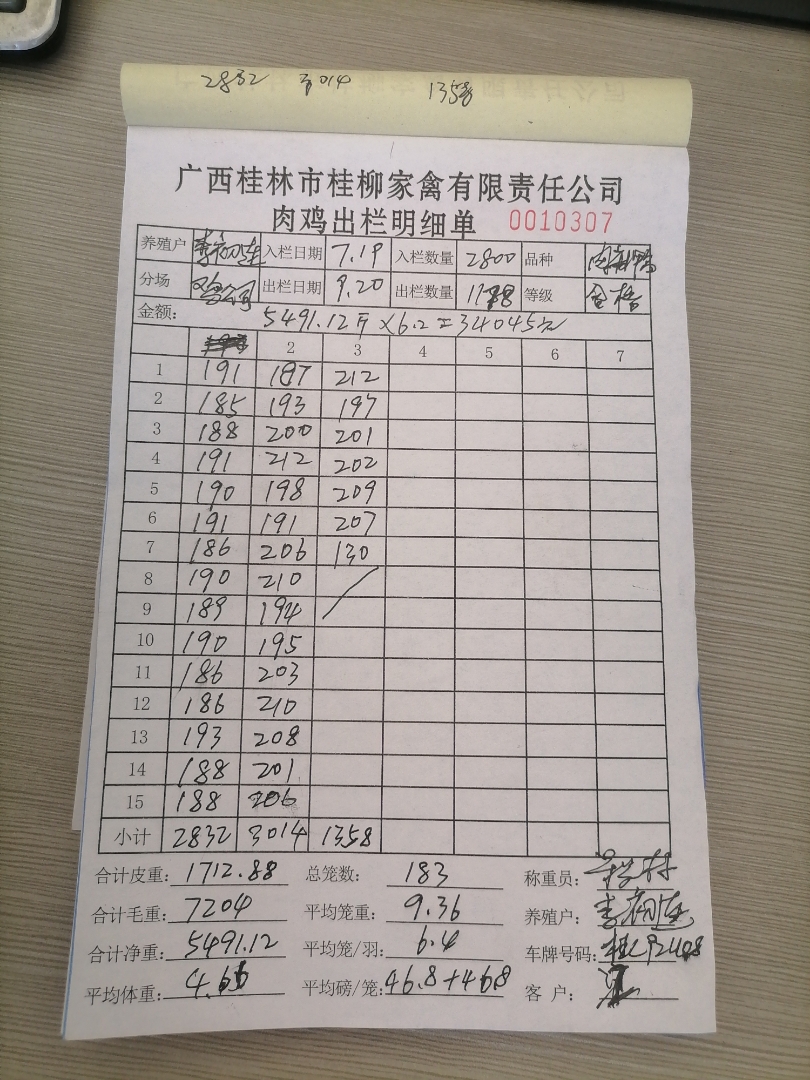 2832 3014 1358
广西桂林市桂柳家禽有限责任公司
肉鸡出栏明细单 0010307
养殖户 入栏日期 7.19 入栏数量 2800 品种
分场 出栏日期 9.20 出栏数量 等级 合格
金额: 5491.12斤×6.2=34045元
2 3 4 5 6 7
1 191 187 212
2 185 193 197
3 188 200 201
4 191 212 202
5 190 198 209
6 191 191 207
7 186 206 130
8 190 210
9 189 194
10 190 195
11 186 203
12 186 210
13 193 208
14 188 201
15 188 206
小计 2832 3014 1358
合计皮重: 1712.88 总笼数: 183 称重员:
合计毛重: 7204 平均笼重: 9.36 养殖户:
合计净重: 5491.12 平均笼/羽: 6.4 车牌号码:
平均体重: 4.66 平均磅/笼: 46.8+46.8 客户: